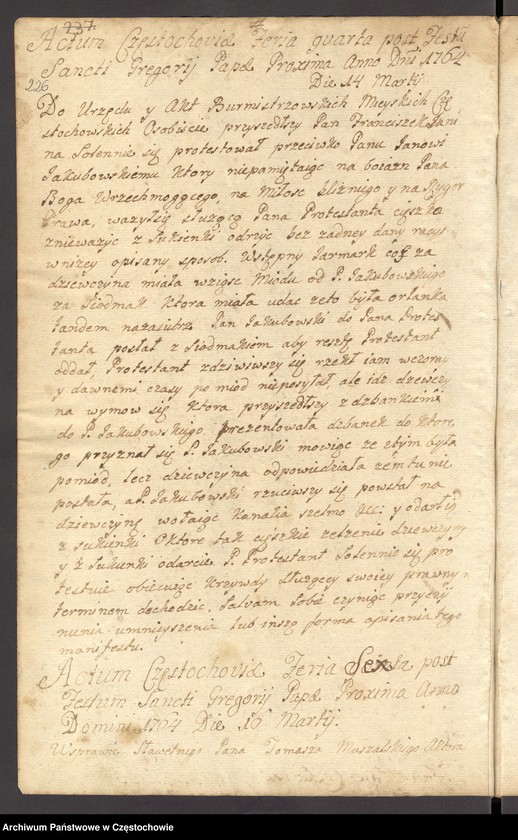 227.
Actum Częstochoviæ Feria quarta post Festū
Sancti Gregorij Papæ Proxima Anno Dni 1764
226
Die 14 Martij
Do Urzędu y Akt Burmistrzowskich Mieyskich Czę
stochowskich Osobiście przyszedłszy Pan Franciszek
na Solennie się protestował przeciwko Panu Janowi
Jakubowskiemu Ktory niepamiętaiąc na boiazn Pana
Boga Wrzechmogącego, na Miłosc bliznięgo y na Rygor
Prawa, wazyłsię słuzącą Pana Protestanta cięszko
zniewazyc z Sukienki odrzyc bez zadney dany racyi
wnizey opisany sposob. Wstępny Jarmark za
dziewczyna miała wziąsc Miodu od P. Jakubowskiego
za Siodmak Ktora miała udac zeto była orlanka
tandem nazaiutrz Pan Jakubowski do Pana Protes
tanta posłał z Siodmakiem aby resztę Protestant
oddał Protestant zdziwiwszy się rzekł iam wczoray
y dawnemi czasy po miod nieposyłał, ale idz dziewczy
na wymow się Ktora przyszedłszy z dzbankiem
do P. Jakubowskiego prezentowała dzbanek do Ktore
go przyznał się P. Jakubowski mowiąc ze ztym była
pomiod, lecz dziewczyna odpowiedziała zemtu nie
postała, a P. Jakubowski rzuciwszy się powstał na
dziewczynę wołaiąc Kanalia szelmo &c: y odarł iey
z sukienki O ktore tak cięszkie zelzenie dziewczyny
y z Sukienki odarcie P. Protestant Solennie się pro
testuie obiecuiąc Krzywdy Słuzącey swoiey prawnym
terminem dochodzic, Salvam sobie czyniąc przyczy
nienia umnieyszenia lub inszą formą opisania tego
manifestu.
Actum Częstochoviæ Feria Sexta post
Festum Sancti Gregorij Papæ Proxima Anno
Domini 1764 Die 16 Martij.
Wsprawie Sławetnego Pana Tomasza Muszalskiego
Archiwum Państwowe w Częstochowie